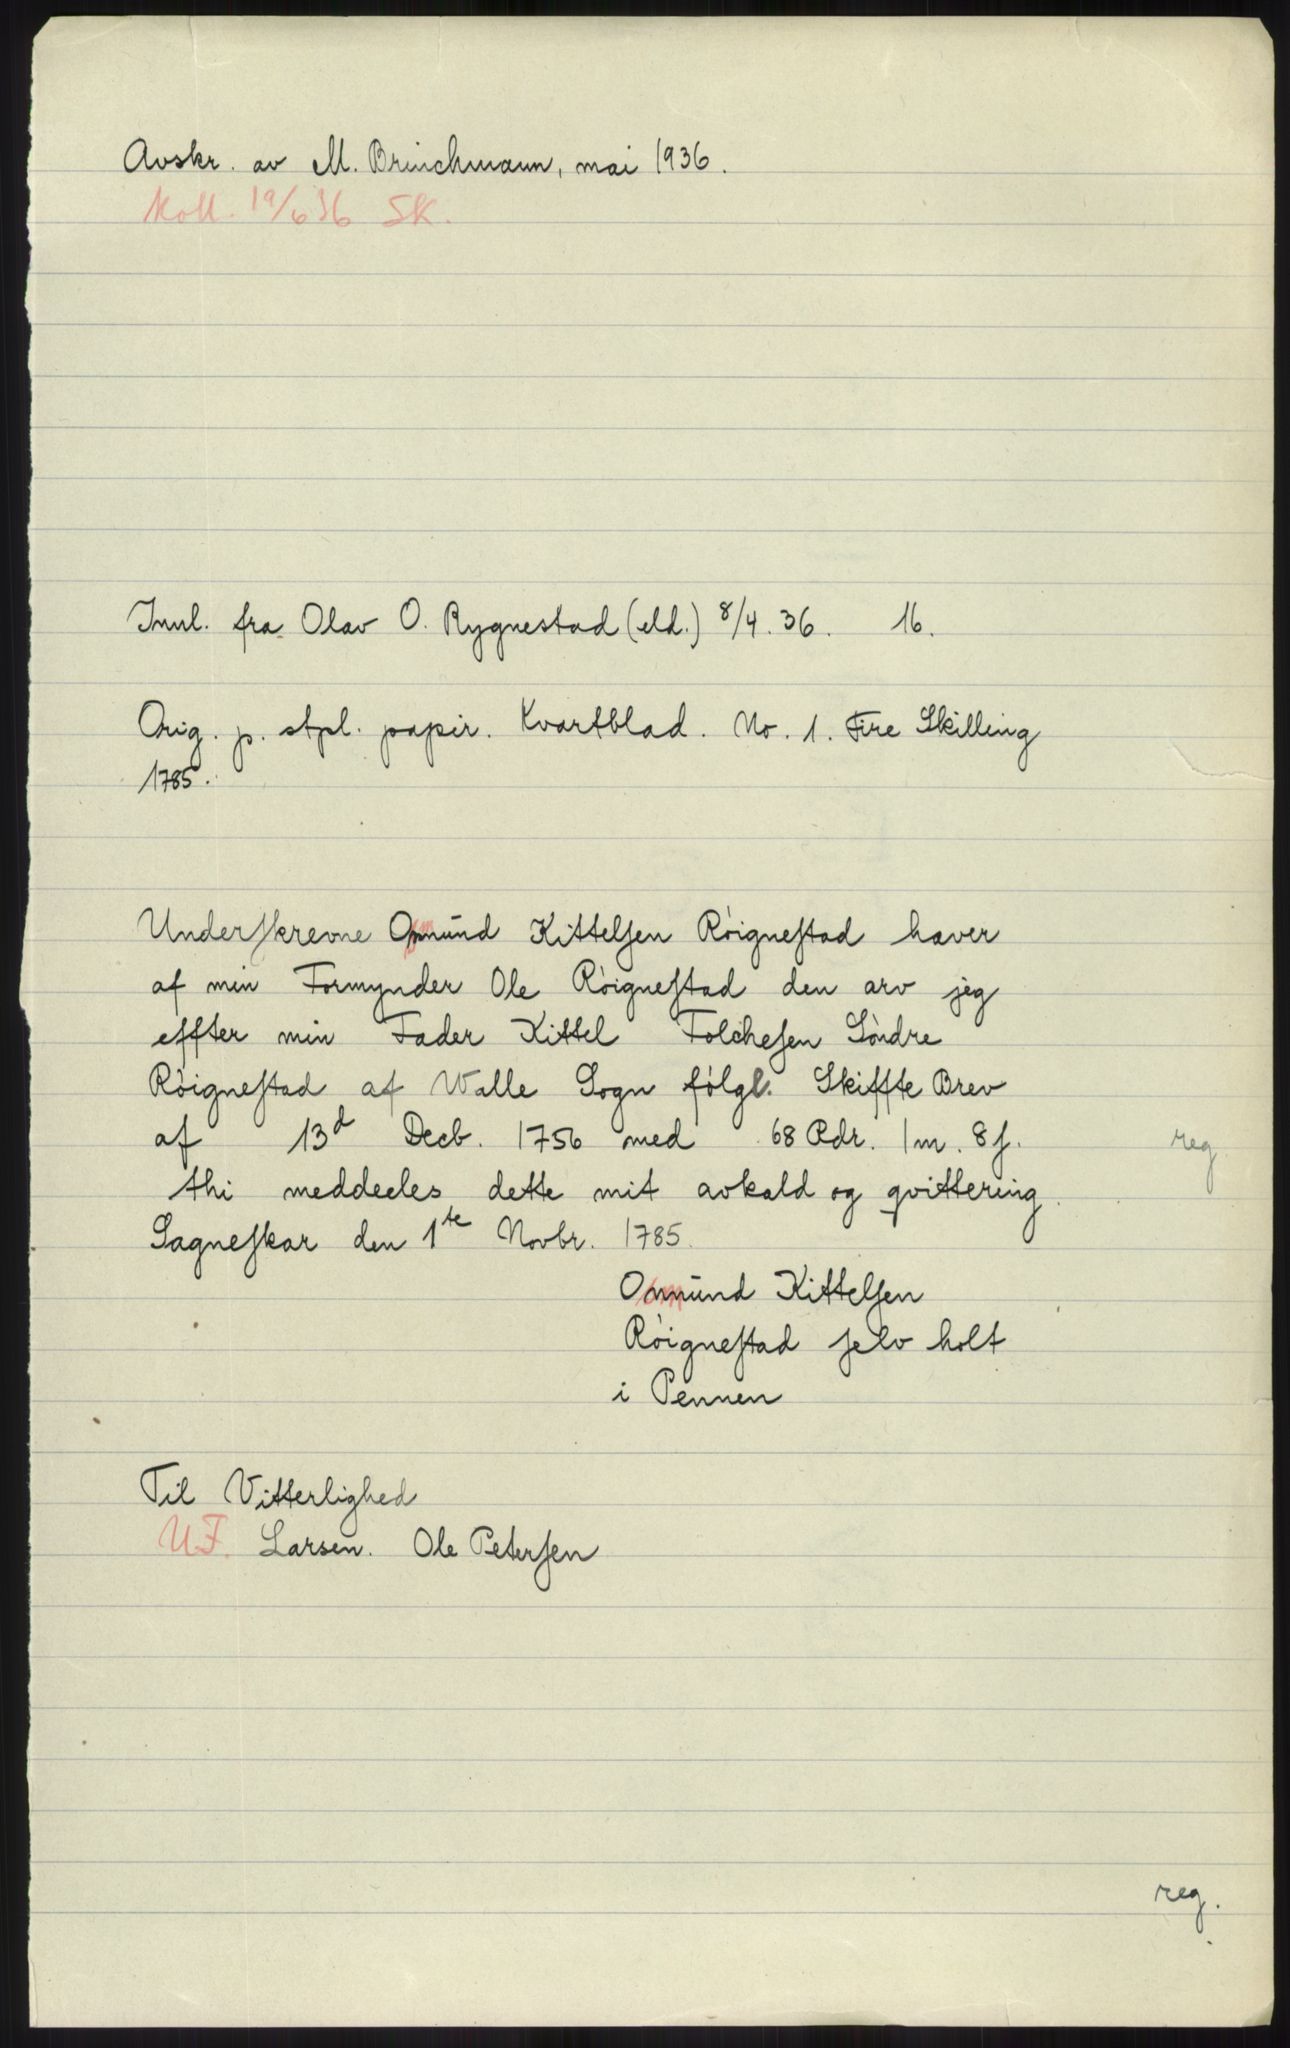 Avskr. av M. Brinchmann, mai 1936.
Koll. 19/6 36 SK.
Innl. fra Olav O. Rygnestad (eld.) 8/4. 36. 16.
Orig. p. stpl. papir. Kvartblad. No. 1. Fire Skilling
1785.
Underſkrevne Omund Kittelſen Röigneſtad haver
af min Formynder Ole Röigneſtad den arv jeg
effter min Fader Kittel Folcheſen Söndre
Röigneſtad af Walle Sogn fölgl. Skiffte Brev
af 13d Decb. 1756 med 68 Rdr. 1 m. 8 ſ. reg
thi meddeeles dette mit avkald og qvittering.
Sagneſkar den 1te Novbr. 1785.
Omund Kittelſen
Röigneſtad ſelv holt
i Pennen
Til Vitterlighed
U.F. Larsen. Ole Peterſen
reg.